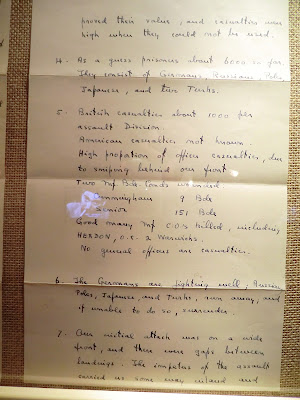 proved their value, and casualties were
high when they could not be used.
4. As a guess prisoners about 6000 so far.
They consist of Germans, Russians, Poles,
Japanese, and two Turks.
5. British casualties about 1000 per
assault Division.
American casualties not known.
High proportion of officer casualties, due
to sniping behind our front.
Two Inf Bde Comds wounded.
Cunningham 9 Bde
Senior 151 Bde
Good many Inf C.O's killed, including
HERDON, O.C. 2 Warwicks.
No general officers are casualties.
6. The Germans are fighting well; Russians,
Poles, Japanese, and Turks, run away, and
if unable to do so, surrender.
7. Our initial attack was on a wide
front, and there were gaps between
landings. The impetus of the assault
carried us some way inland and